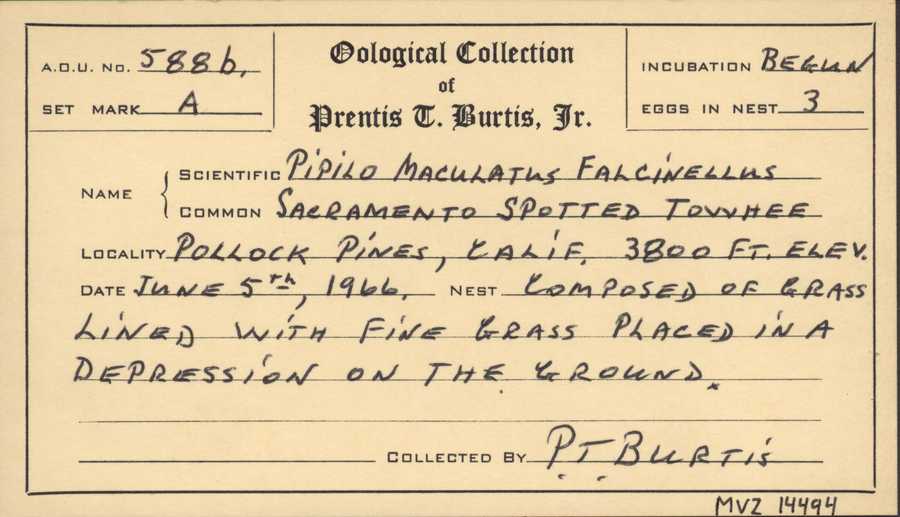 A.O.U. No. 588b.
SET MARK A
Oological Collection
of
Prentis T. Burtis, Jr.
INCUBATION BEGUN
EGGS IN NEST 3
NAME { SCIENTIFIC PIPILO MACULATUS FALCINELLUS
COMMON SACRAMENTO SPOTTED TOWHEE
LOCALITY POLLOCK PINES, CALIF. 3800 FT. ELEV.
DATE JUNE 5th, 1966. NEST COMPOSED OF GRASS
LINED WITH FINE GRASS PLACED IN A
DEPRESSION ON THE GROUND.
COLLECTED BY P.T. BURTIS
MVZ 14494